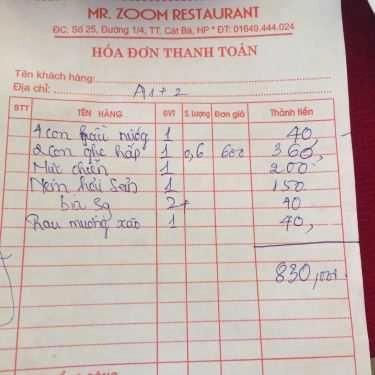 MR. ZOOM RESTAURANT
ĐC: Số 25, Đường 1/4, TT. Cát Bà, HP * ĐT: 01649.444.024
HÓA ĐƠN THANH TOÁN
Tên khách hàng:
Địa chỉ: A1+2
STT TÊN HÀNG ĐVT S.Lượng Đơn giá Thành tiền
1 con nướng 1 40,
2 con ghẹ hấp 1 0,6 600 360,
Mực chiên 1 200
Nem hải sản 1 150
bia sg 2+ 40
Rau muống xào 1 40,
830,000